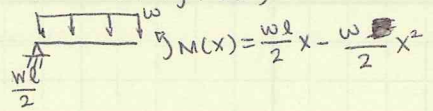 w
M(x) = wl/2 x - w/2 x²
wl/2